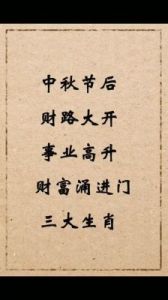 中秋节后
财路大开
事业高升
财富涌进门
三大生肖